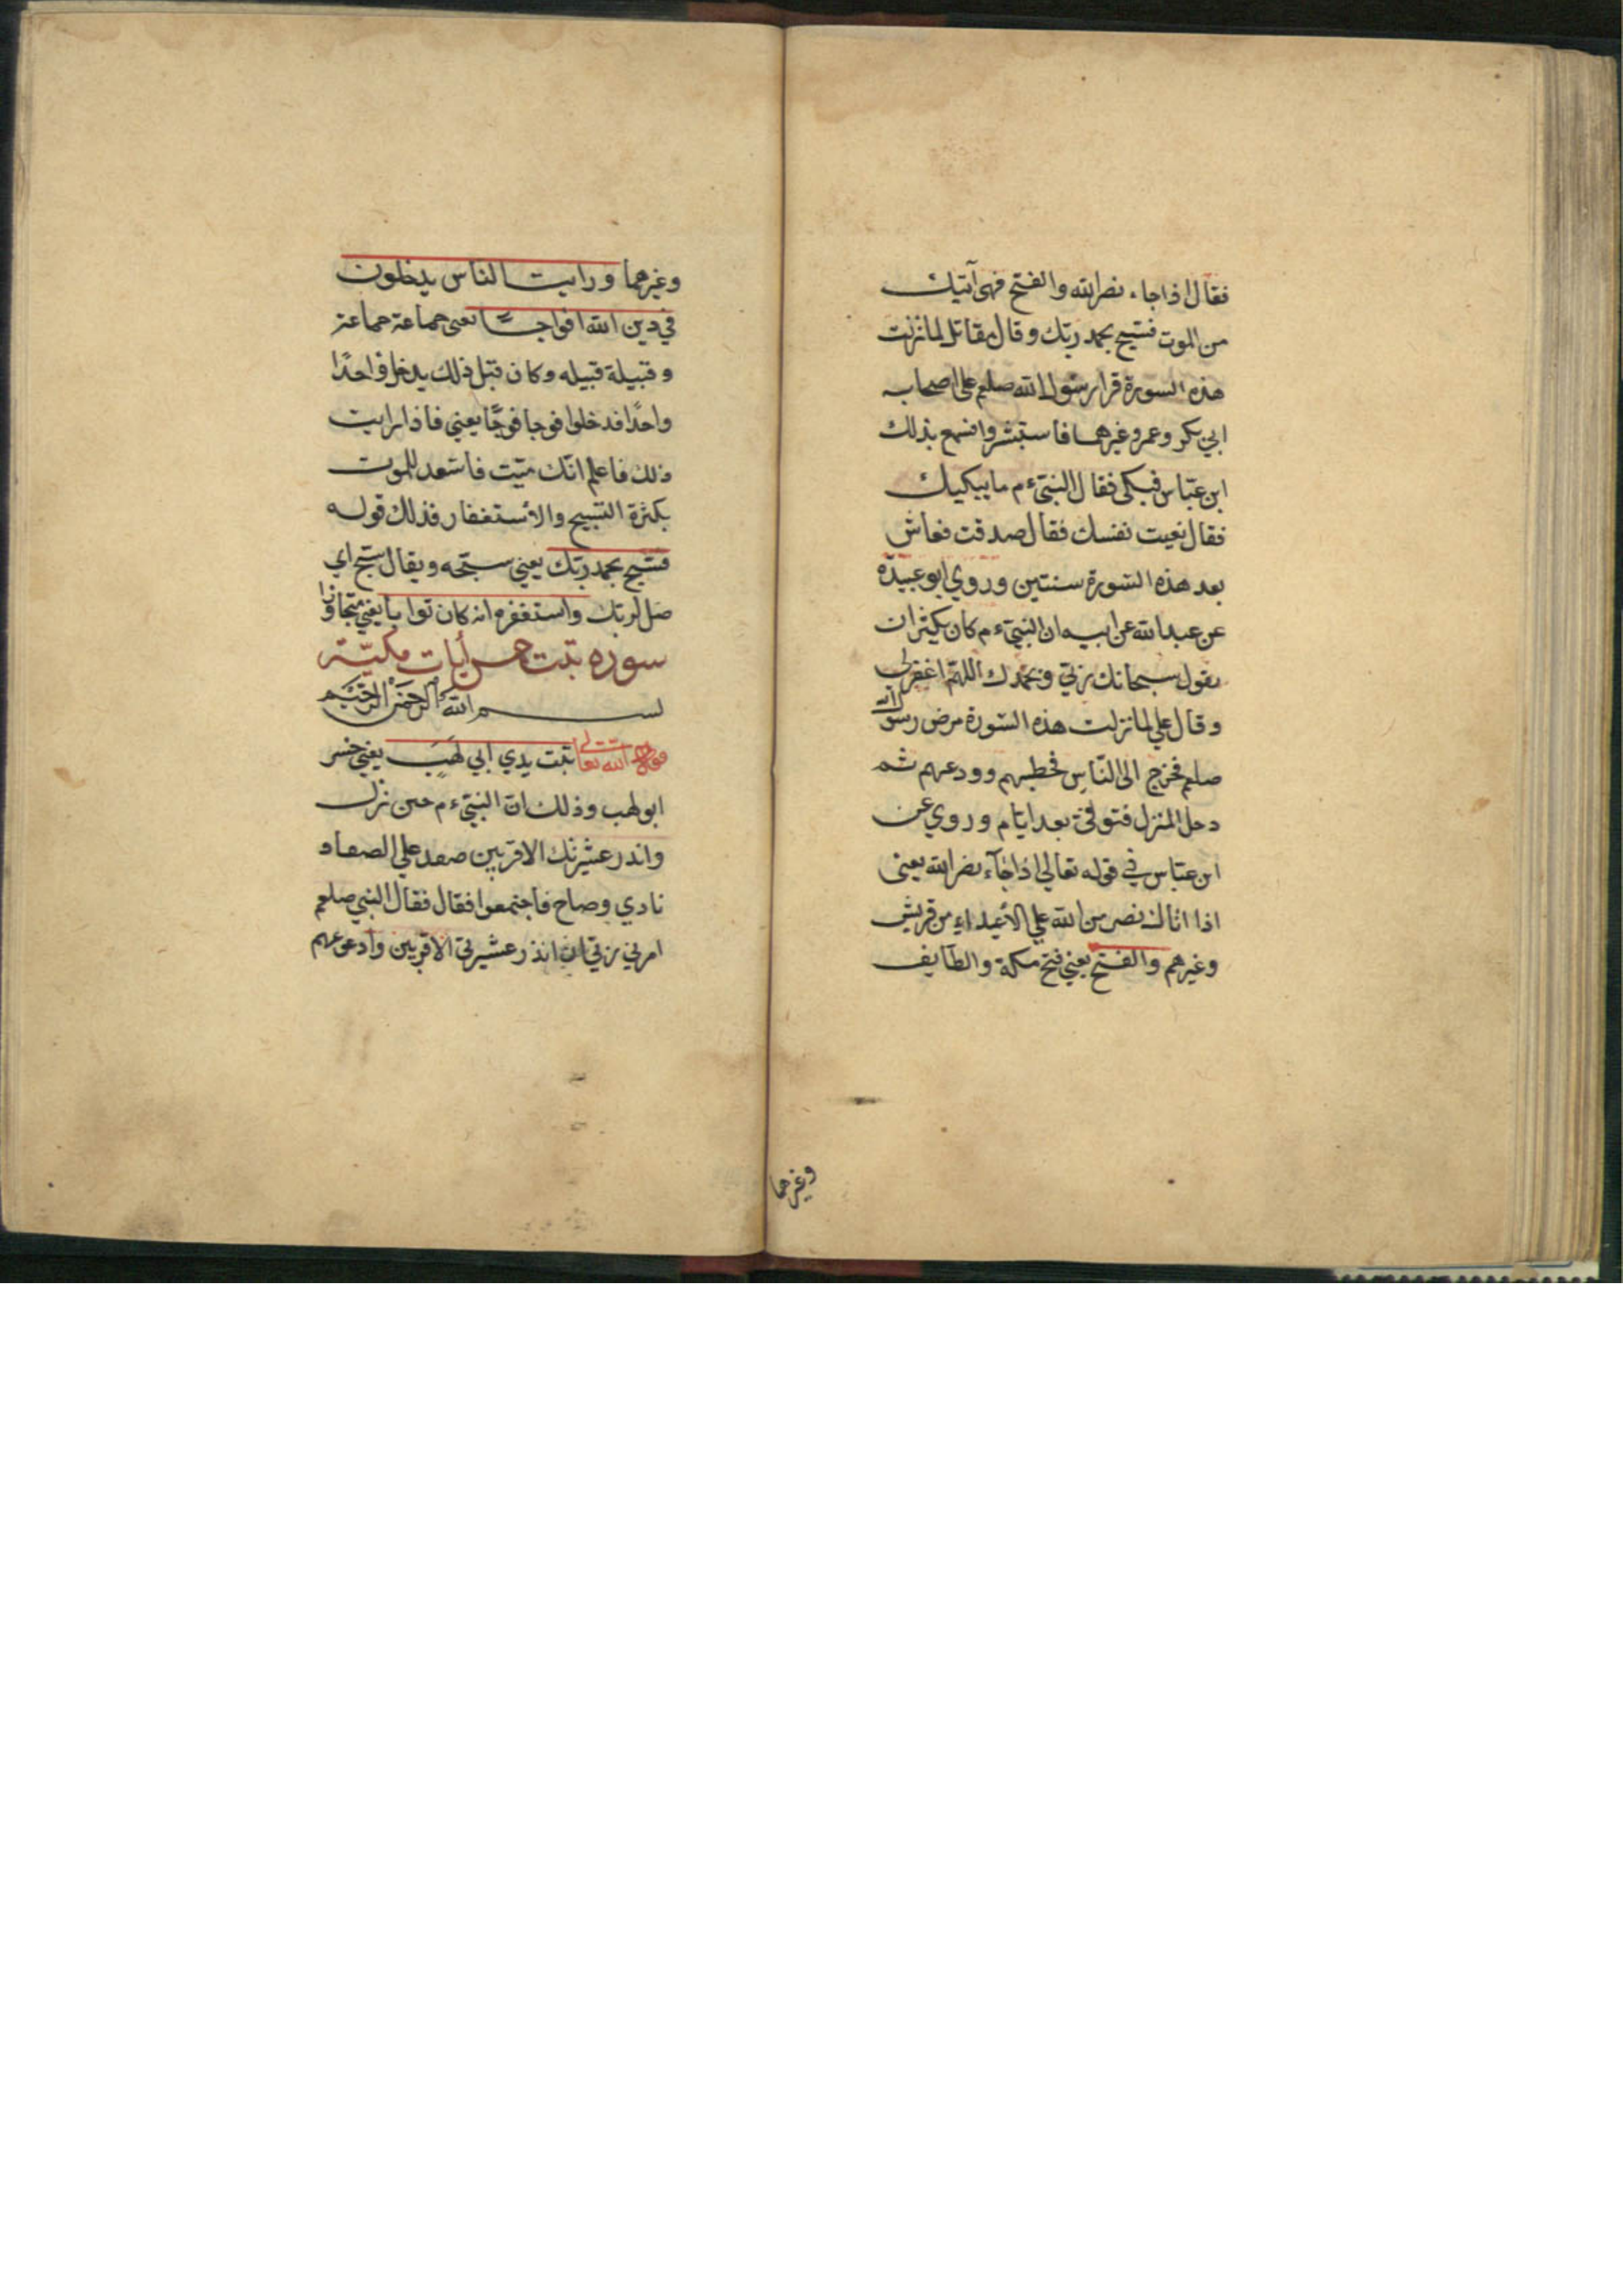 فقال اذا جاء نصر الله والفتح فهي آتيك
من الموت فسبح بحمد ربك وقال مقاتل لما نزلت
هذه السورة قرا رسول الله صلعم على اصحابه
ابي بكر وعمر وغيرهما فاستبشروا فسمع بذلك
ابن عباس فبكى فقال النبي ءم ما يبكيك
فقال نعيت نفسك فقال صدقت فعاش
بعد هذه السورة سنتين وروي ابو عبيدة
عن عبد الله عن ابيه ان النبي ءم كان يكثر ان
يقول سبحانك ربي وبحمدك اللهم اغفر لي
وقال علي لما نزلت هذه السورة مرض رسول الله
صلعم فخرج الى الناس فخطبهم وودعهم ثم
دخل المنزل فتوفي بعد ايام وروي عن
ابن عباس في قوله تعالي اذا جآء نصر الله يعني
اذا اتاك نصر من الله علي الأعداء من قريش
وغيرهم والفتح يعني فتح مكة والطآيف
وغيرهما
وغيرهما ورايت الناس يدخلون
في دين الله افواجا يعني جماعة جماعة
وقبيلة قبيله وكان قبل ذلك يدخل واحدًا
واحدًا فدخلوا فوجا فوجًا يعني فاذا رايت
ذلك فاعلم انّك ميّت فاستعد للموت
بكثرة التسبيح والأستغفار فذلك قوله
فسبّح بحمد ربّك يعني سبّحه ويقال سبّح اي
صَل لربّك واستغفره انه كان توابا يعني متجاوزا
سوره تبت خمس أيات مكيّة
بسم الله الرحمن الرحيم
قوله الله تعالى تبت يدي ابي لهبٍ يعني خسر
ابو لهب وذلك انّ النبيّ ءم حين نزل
واندر عشيرتك الاقربين صعد علي الصفا و
نادي وصاح فاجتمعوا فقال فقال النبي صلعم
امرني ربّي ان انذر عشيرتي الاقربين وادعوهم